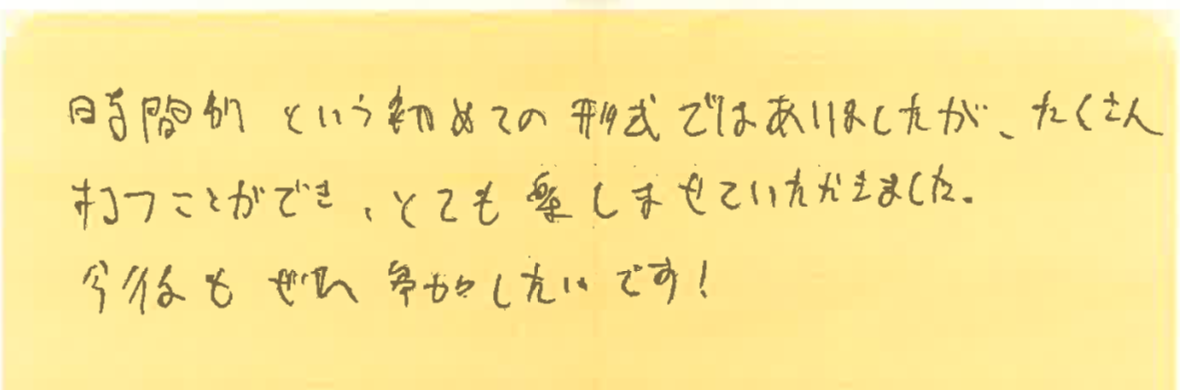 時間制という初めての形式ではありましたが、たくさん
打つことができ、とても楽しませていただきました。
今後もぜひ参加したいです!